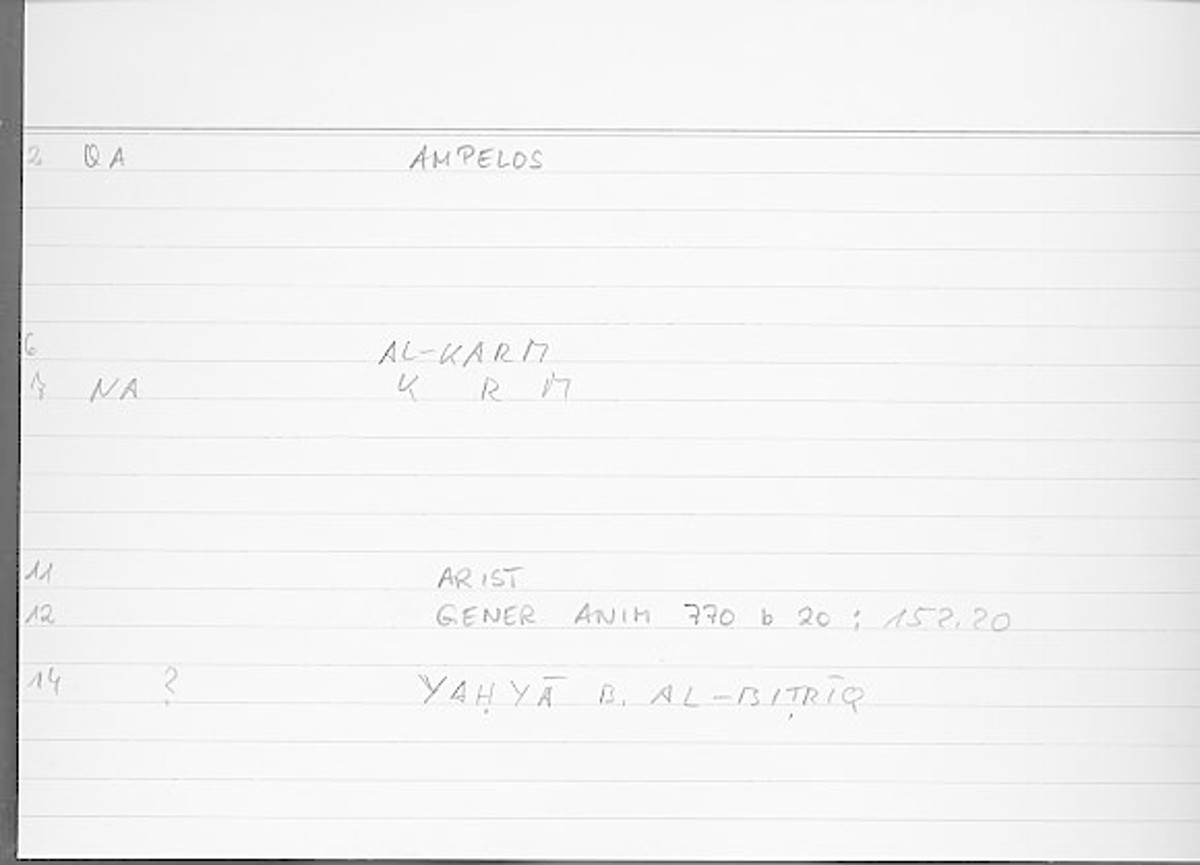 2 QA AMPELOS
6 AL-KARM
7 NA K R M
11 ARIST
12 GENER ANIM 770 b 20 ; 152.20
14 ? YAḤYĀ B. AL-BIṬRĪQ